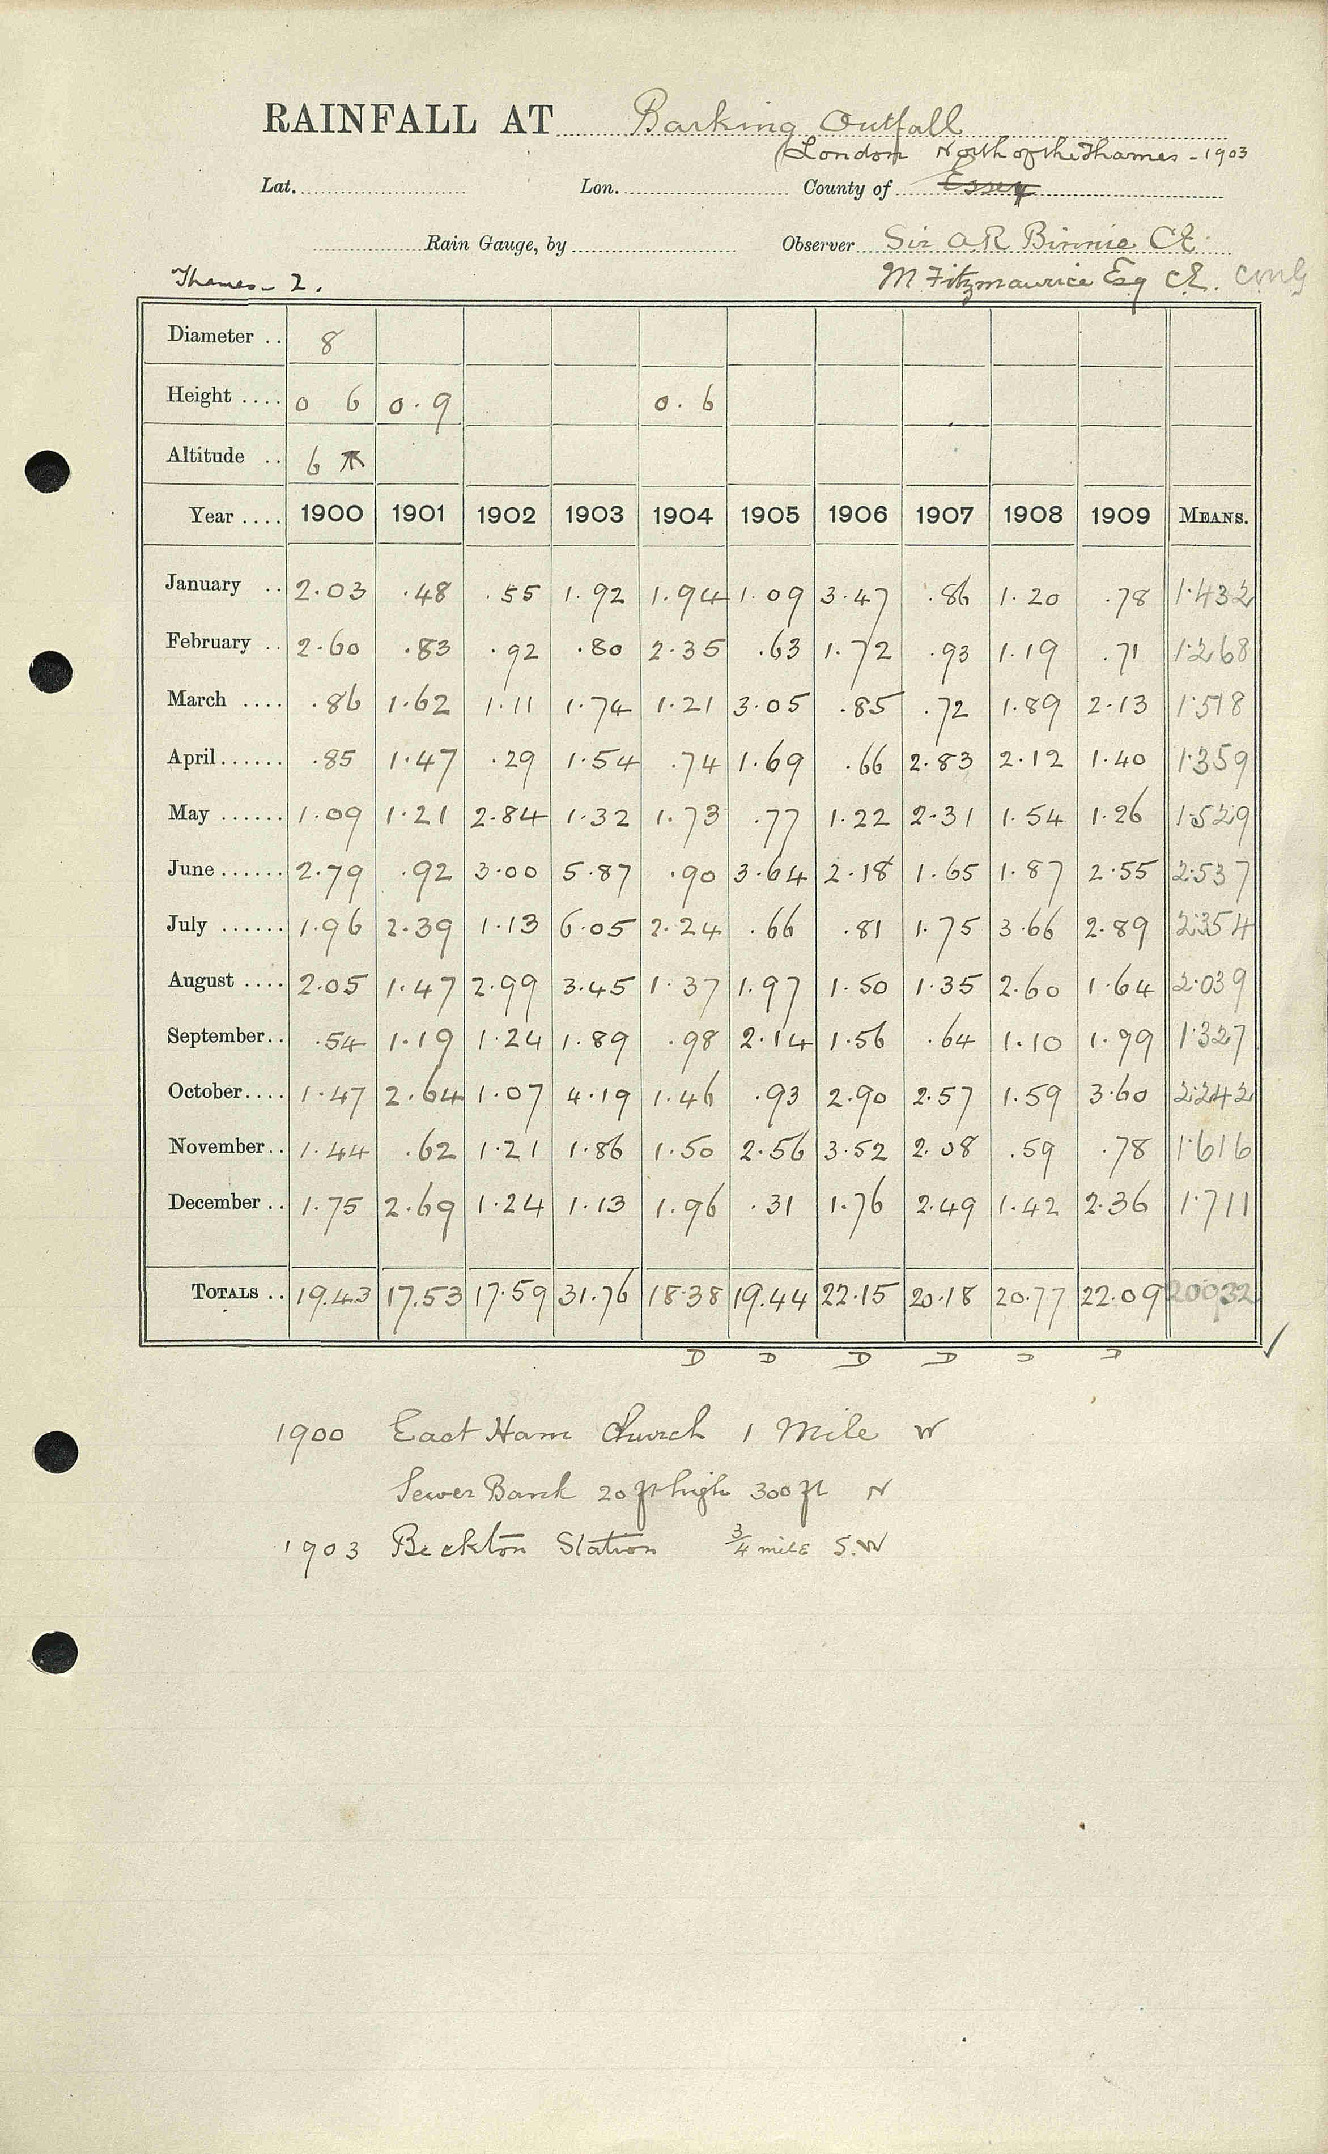 RAINFALL AT Barking Outfall
(London North of the Thames - 1903
Lat. Lon. County of Essex
Rain Gauge, by Observer Sir A R Binnie CE
Thames - 2. M Fitzmaurice Esq CE. CMG
Diameter .. 8
Height .... 0 6 0.9 0.6
Altitude .. 6
Year .... 1900 1901 1902 1903 1904 1905 1906 1907 1908 1909 MEANS.
January .. 2.03 .48 .55 1.92 1.94 1.09 3.47 .86 1.20 .78 1.432
February .. 2.60 .83 .92 .80 2.35 .63 1.72 .93 1.19 .71 1.268
March .... .86 1.62 1.11 1.74 1.21 3.05 .85 .72 1.89 2.13 1.518
April ...... .85 1.47 .29 1.54 .74 1.69 .66 2.83 2.12 1.40 1.359
May ...... 1.09 1.21 2.84 1.32 1.73 .77 1.22 2.31 1.54 1.26 1.529
June ...... 2.79 .92 3.00 5.87 .90 3.64 2.18 1.65 1.87 2.55 2.537
July ...... 1.96 2.39 1.13 6.05 2.24 .66 .81 1.75 3.66 2.89 2.354
August .... 2.05 1.47 2.99 3.45 1.37 1.97 1.50 1.35 2.60 1.64 2.039
September .. .54 1.19 1.24 1.89 .98 2.14 1.56 .64 1.10 1.99 1.327
October .... 1.47 2.64 1.07 4.19 1.46 .93 2.90 2.57 1.59 3.60 2.242
November .. 1.44 .62 1.21 1.86 1.50 2.56 3.52 2.08 .59 .78 1.616
December .. 1.75 2.69 1.24 1.13 1.96 .31 1.76 2.49 1.42 2.36 1.711
TOTALS .. 19.43 17.53 17.59 31.76 18.38 19.44 22.15 20.18 20.77 22.09 20932
D D D D D D
1900 East Ham Church 1 Mile W
Sewer Bank 20 ft high 300 ft N
1903 Beckton Station 3/4 mile S.W